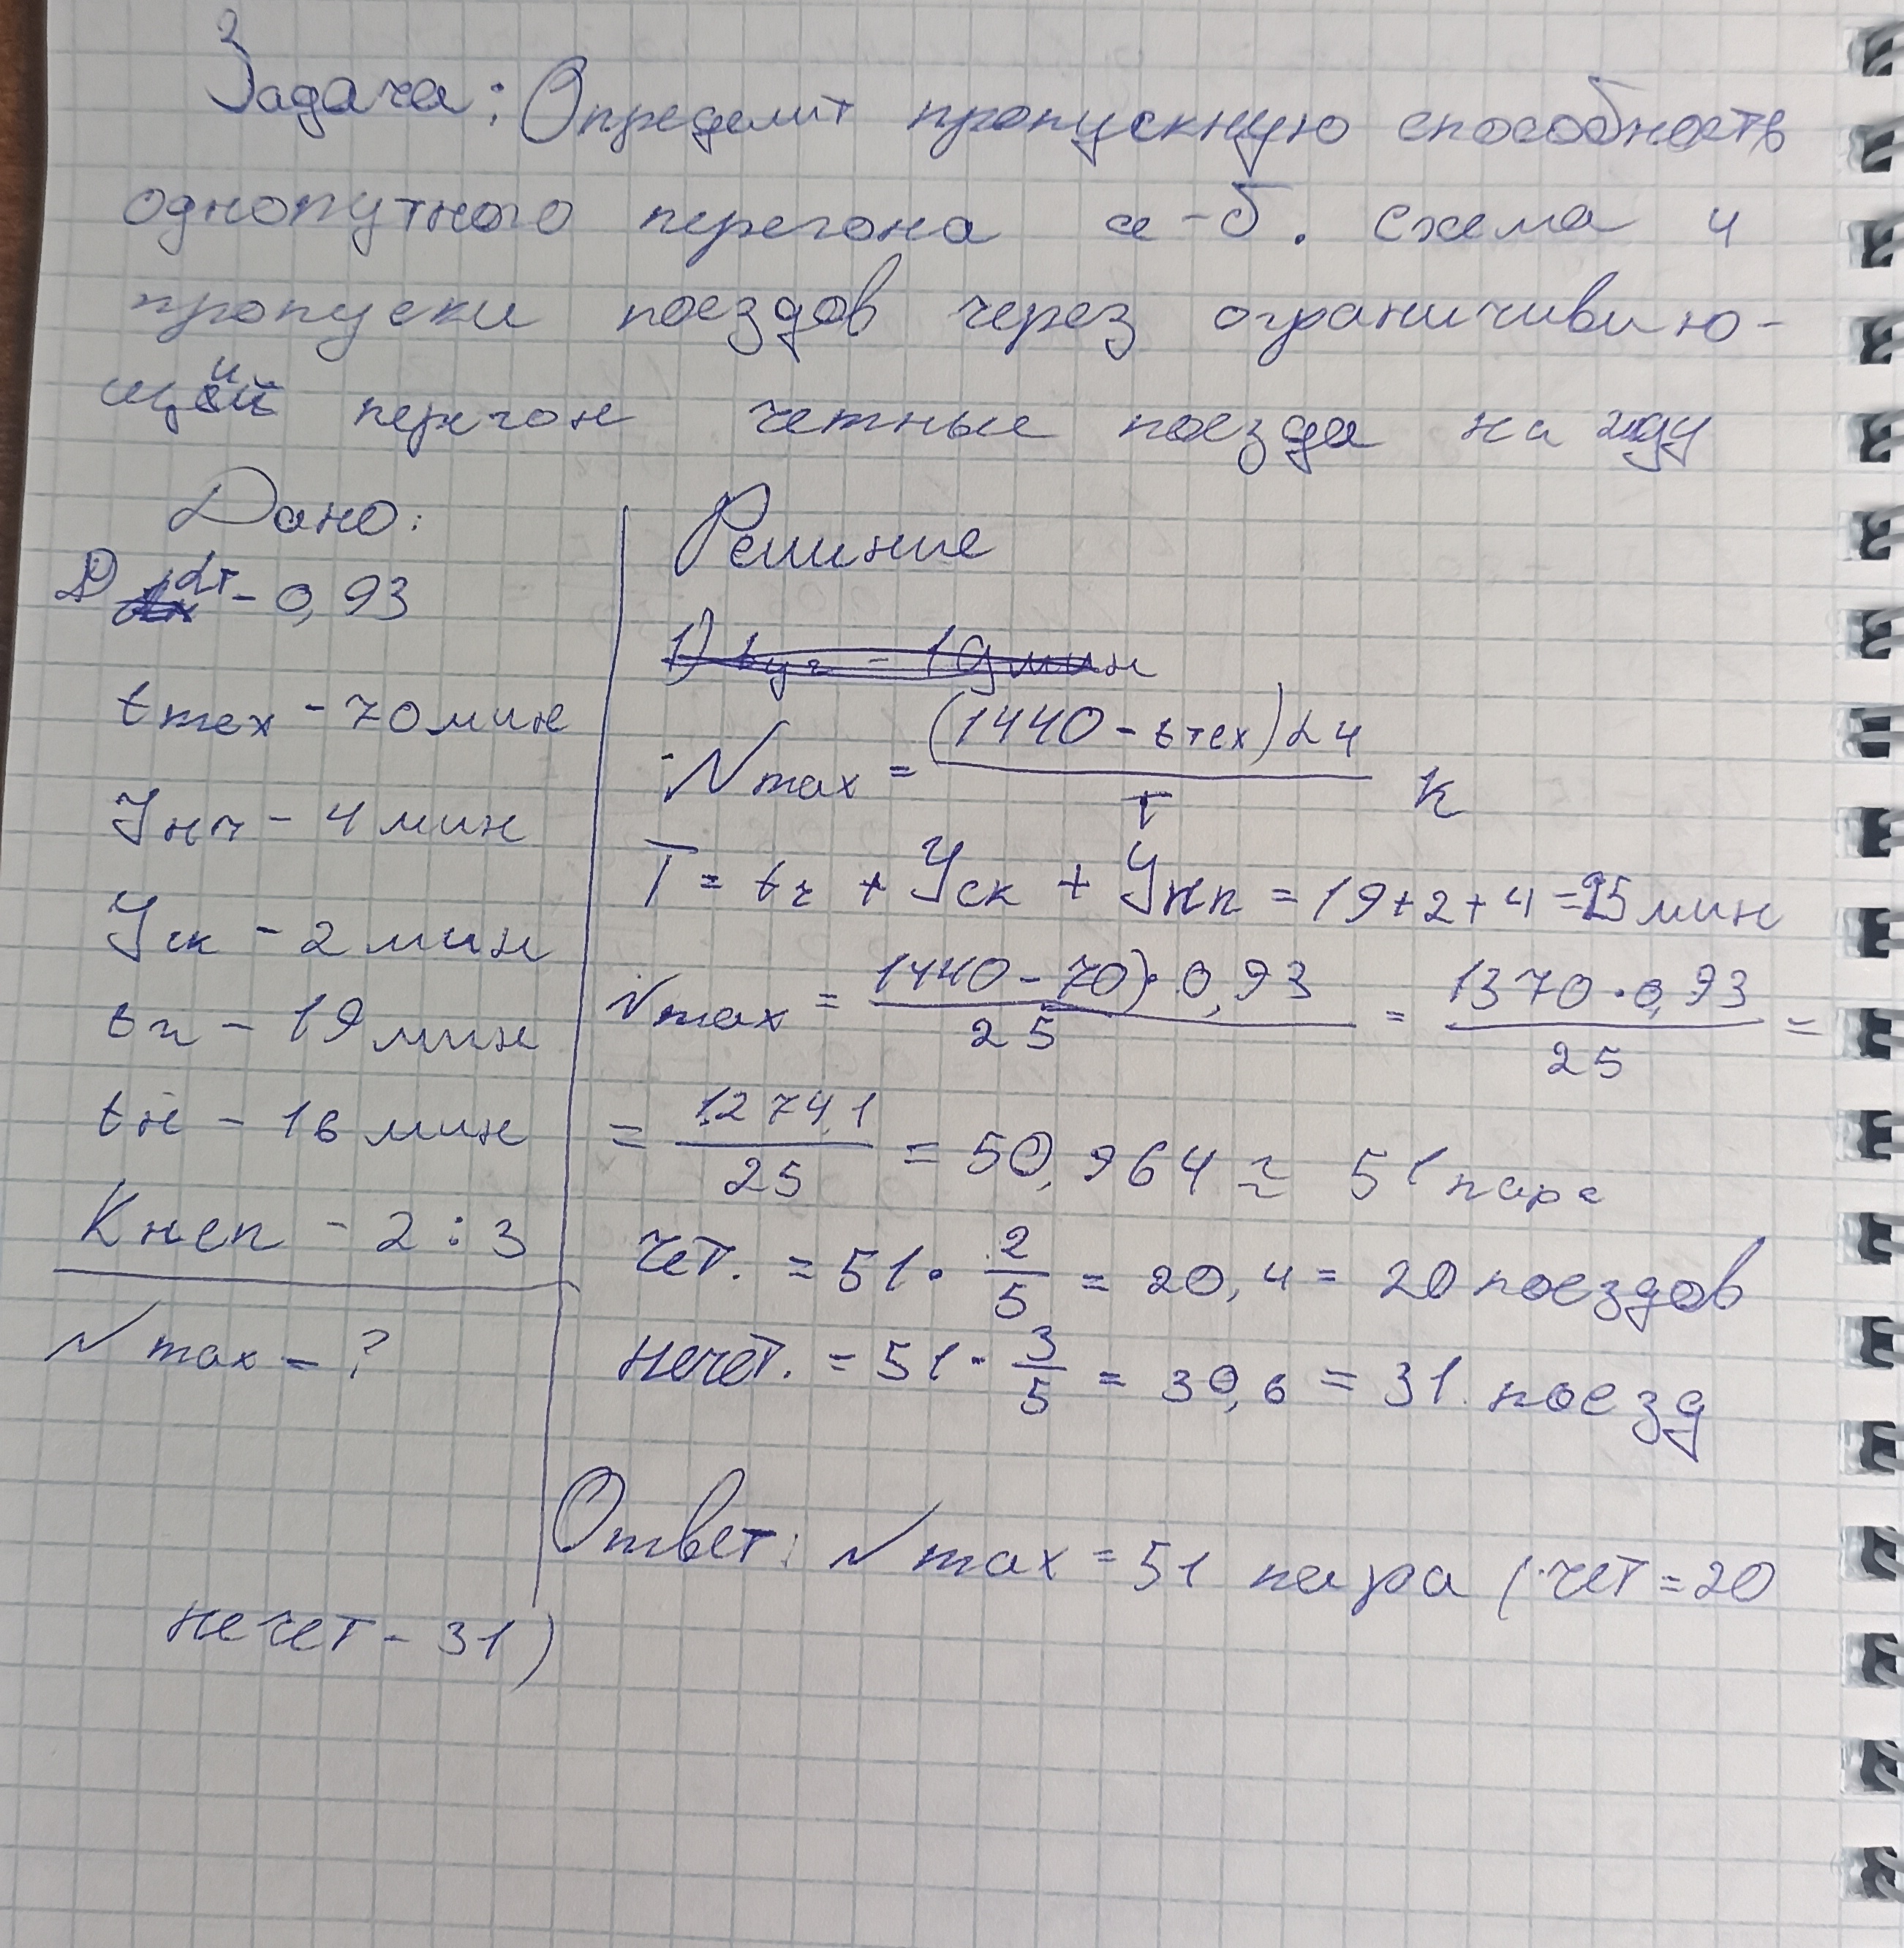 Задача: Определит пропускную способность
однопутного перегона а-б. схема 4
пропуски поездов через ограничиваю-
щий перегон четные поезда на жду
Дано:
αт - 0,93
tтех - 70 мин
Jнп - 4 мин
Jск - 2 мин
tч - 19 мин
tн - 16 мин
Кнеп - 2 : 3
N max - ?
Решение
1) tуч - 19 мин
N max = (1440 - tтех) α ч / T К
T = tч + Jск + Jнп = 19+2+4 = 25 мин
N max = 1440 - 70) · 0,93 / 25 = 1370 · 0,93 / 25 =
= 1274,1 / 25 = 50,964 ≈ 51 пара
чет. = 51 · 2/5 = 20,4 = 20 поездов
нечет. = 51 · 3/5 = 30,6 = 31 поезд
Ответ: N max = 51 пара (чет = 20
нечет - 31)